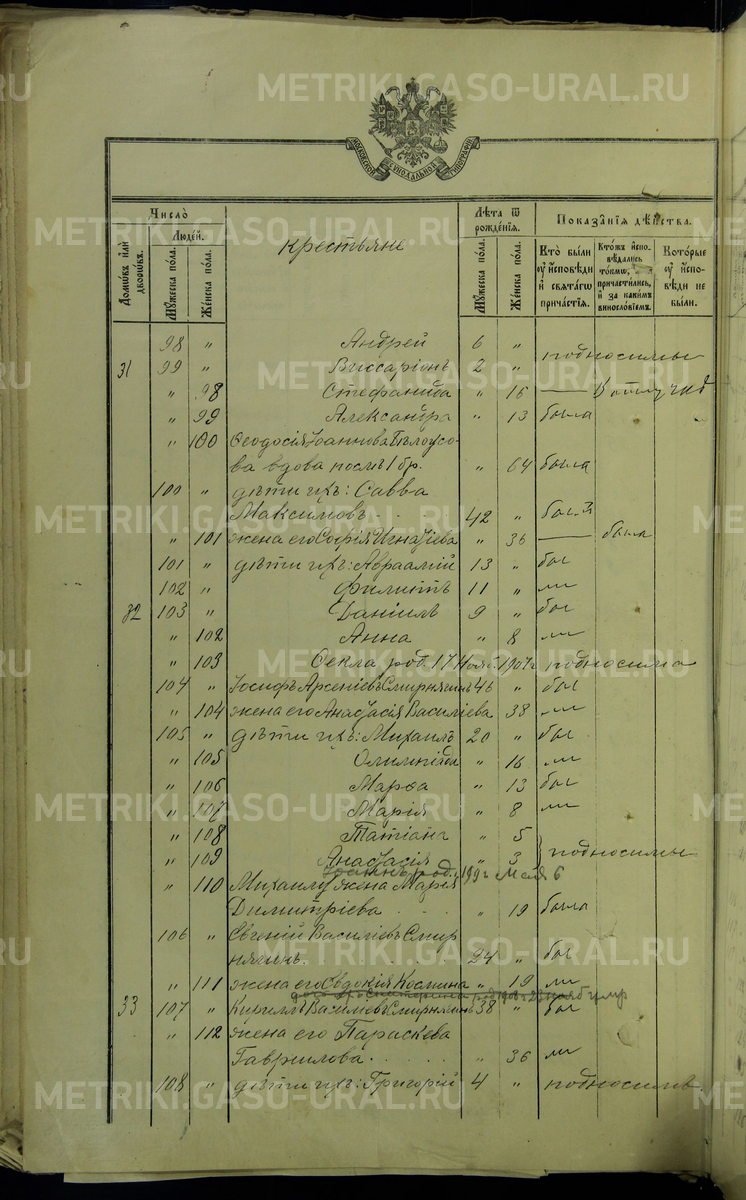 METRIKI.GASO-URAL.RU
МОСКОВСКОЙ СѴНОДАЛЬНОЙ ТИПОГРАФІИ
Число̀
Домѡвъ или дворѡвъ.
Людей.
Мꙋжеска пола.
Женска пола.
Крестьяне
Лѣта ѿ рожденїя.
Мꙋжеска пола.
Женска пола.
Показанїя дѣйства.
Кто были ᲂу исповѣди и свѧтагѡ причастїѧ.
Ктожъ исповѣдались токмѡ, причастились, и за какимъ винословїемъ.
Которые ᲂу исповѣди не были.
98 " Андрей 6 "
31 99 " Виссаріонъ 2 " подносимы
" 98 Стефанида " 16 —
" 99 Александра " 13 была
" 100 Ѳеодосія Іоаннова Бѣлоусо-
ва вдова послѣ 1 бр. " 64 была
100 " дѣти ихъ: Савва
Максимовъ 42 " был
" 101 жена его Софія Игнатіева " 36 — была
101 " дѣти ихъ: Авраамій 13 " был
102 " Филиппъ 11 "
32 103 " Даніилъ 9 " был
" 102 Анна " 8
" 103 Ѳекла род. 17 Нояб. 1907 г. подносима
104 " Іосифъ Арсеніевъ Смирнягинъ 46 " был
" 104 жена его Анастасія Василіева 38
105 " дѣти ихъ: Михаилъ 20 " был
" 105 Олимпіада " 16
" 106 Марѳа " 13 был
" 107 Марія " 8
" 108 Татіана " 5
" 109 Анастасія " 3 подносимы
Іоаннъ род.
" 110 Михаилу жена Марія
Димитріева " 19 была
106 " Евгеній Василіевъ Смир
нягинъ. 24 " был
" 111 жена его Евдокія Космина " 19
33 107 " Кириллъ Василіевъ Смирнягинъ 38 " был
" 112 жена его Параскева
Гавриилова " 36
108 " дѣти ихъ: Григорій 4 " подносимъ